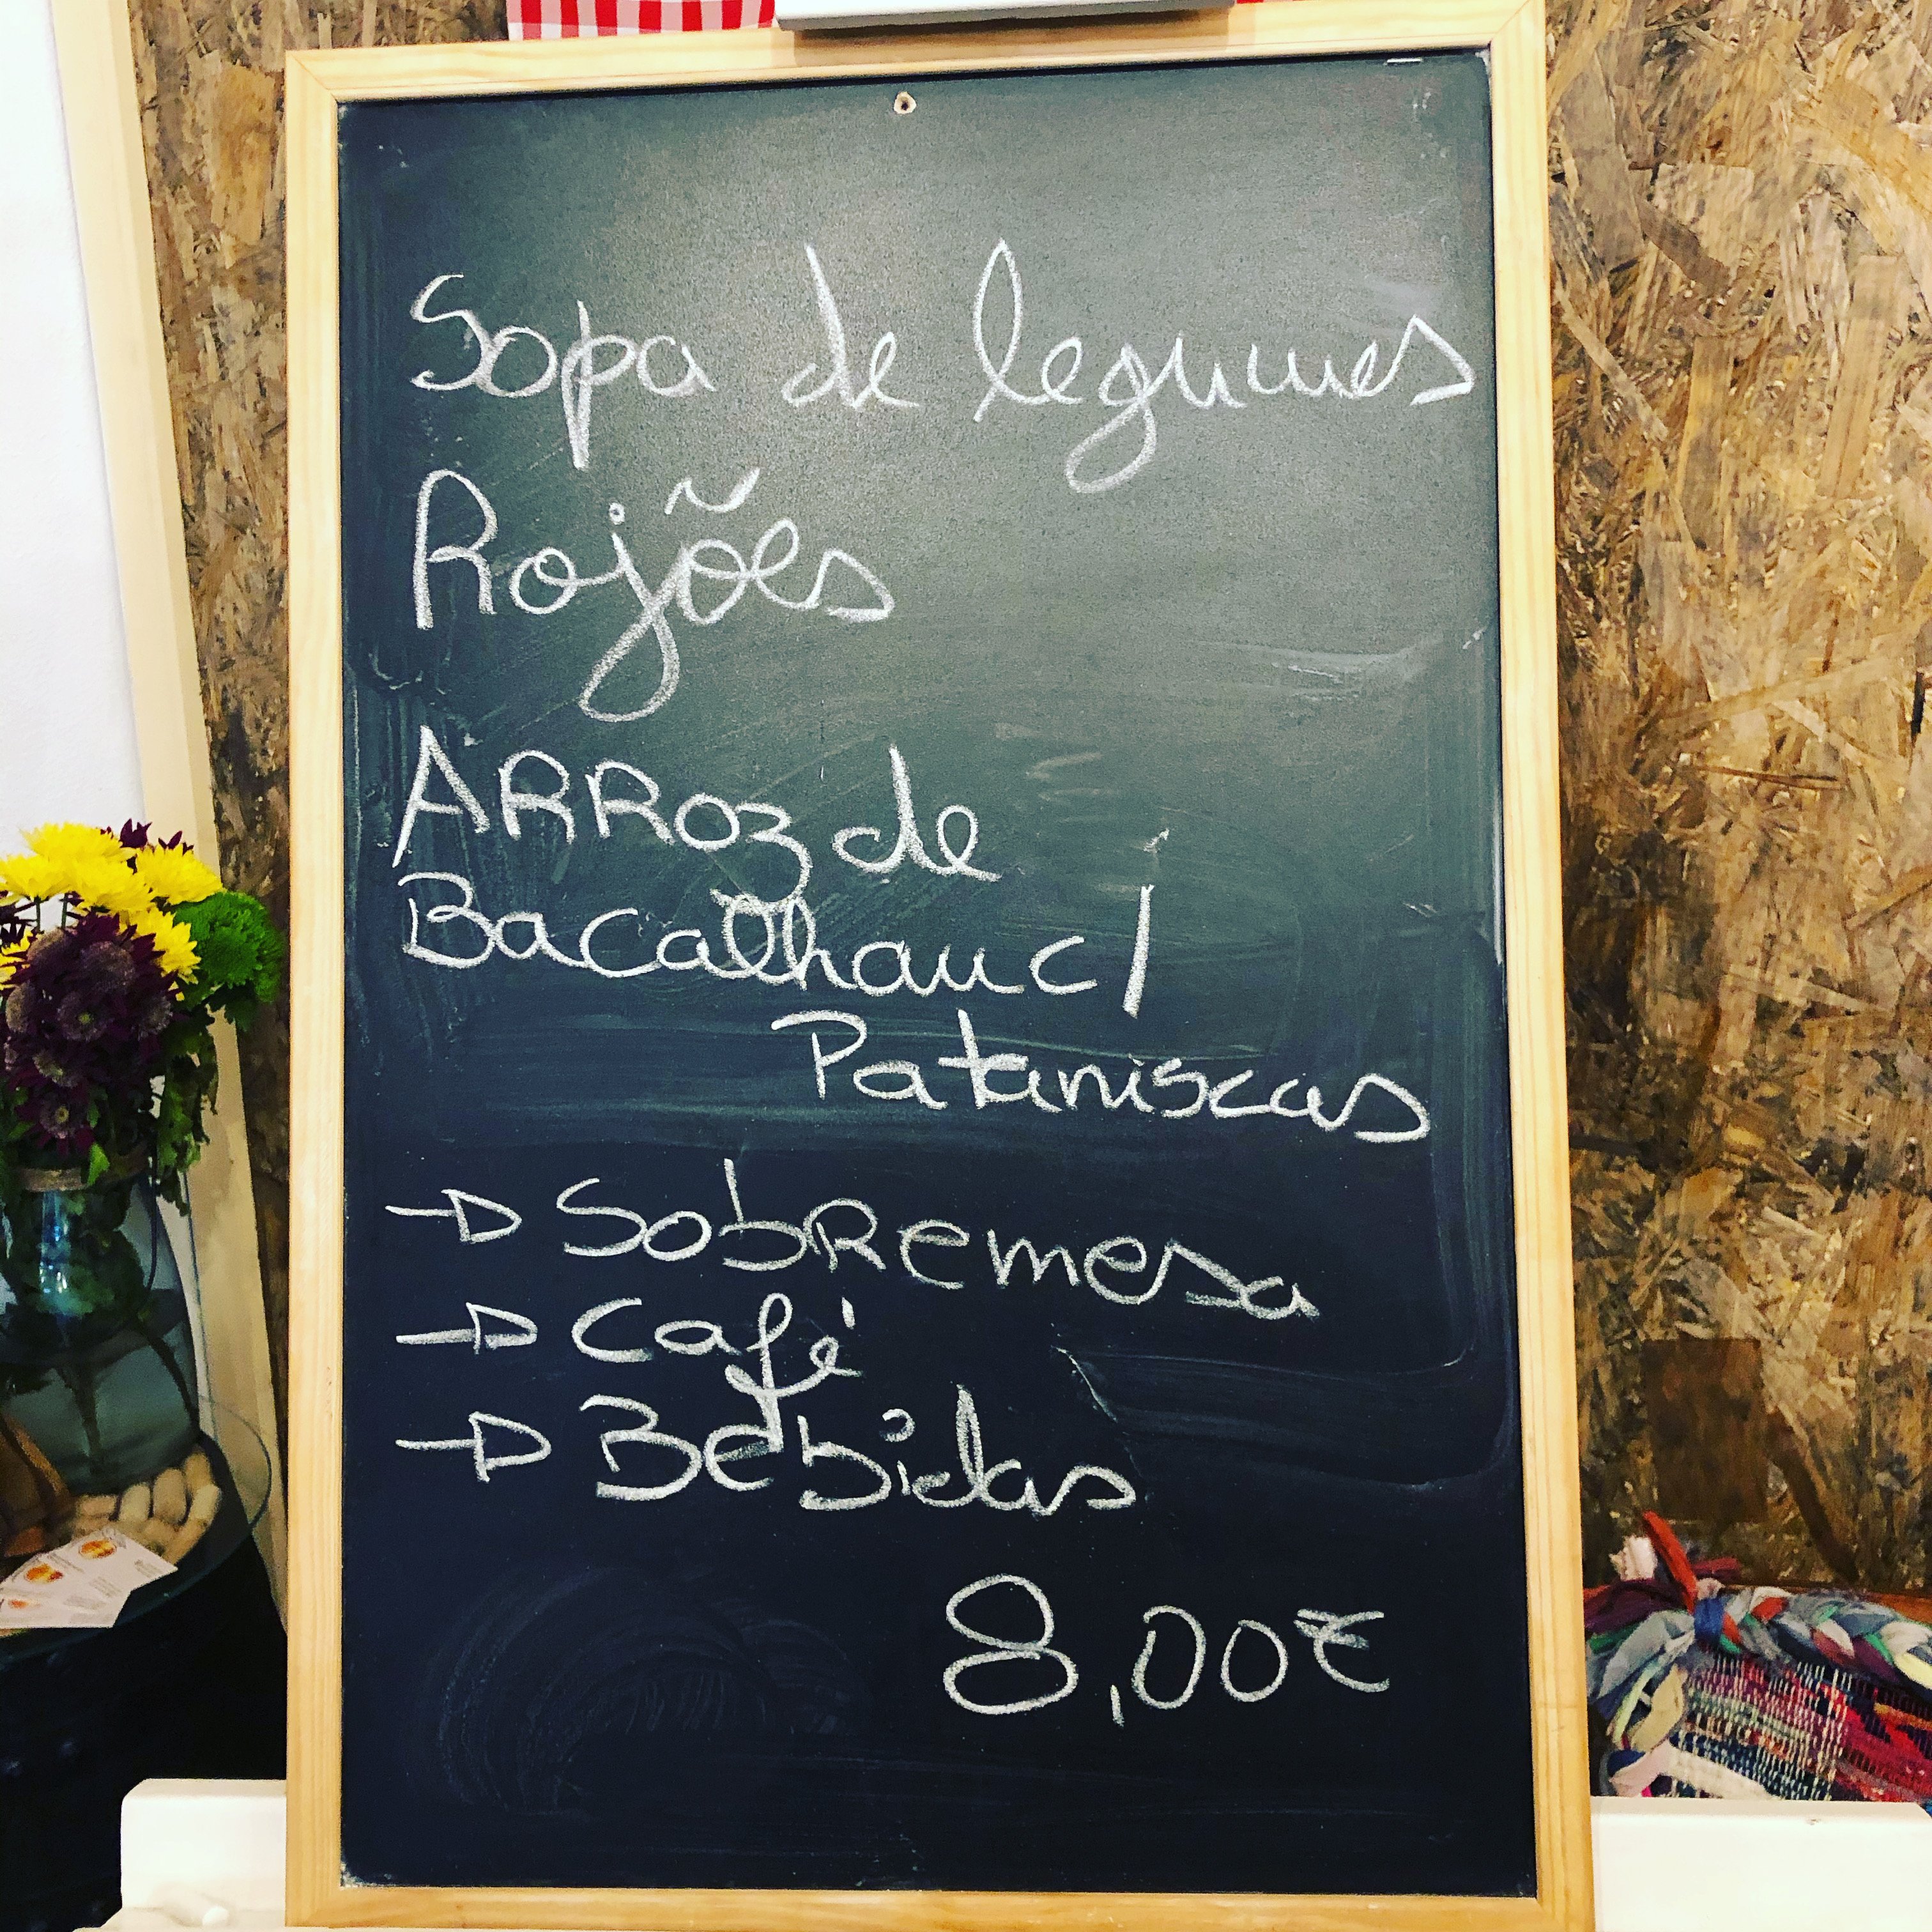 Sopa de legumes
Rojões
ARROZ de
Bacalhau c/
Pataniscas
→ SobRemesa
→ Café
→ Bebidas
8,00€